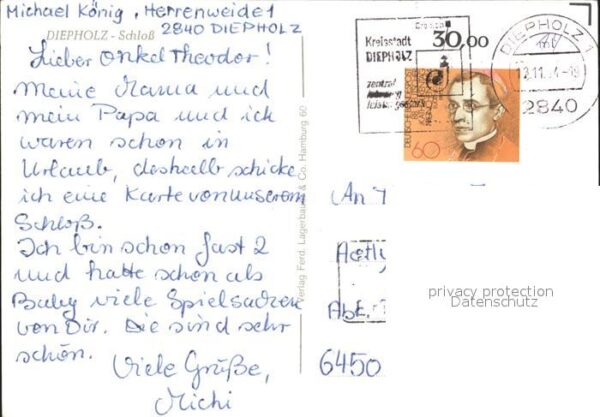 Michael König, Herrenweide 1
2840 DIEPHOLZ
DIEPHOLZ - Schloß
Lieber Onkel Theodor!
Meine Mama und
mein Papa und ich
waren schon in
Urlaub, deshalb schicke
ich eine Karte von unserem
Schloß.
Ich bin schon fast 2
und hatte schon als
Baby viele Spielsachen
von Dir. Die sind sehr
schön.
Viele Grüße,
Michi
Verlag Ferd. Lagerbauer & Co. Hamburg 60
30,00
Kreisstadt
DIEPHOLZ
zentral
DIEPHOLZ 1
2840
DEUTSCHE BUNDESPOST
60
An
6450
privacy protection
Datenschutz